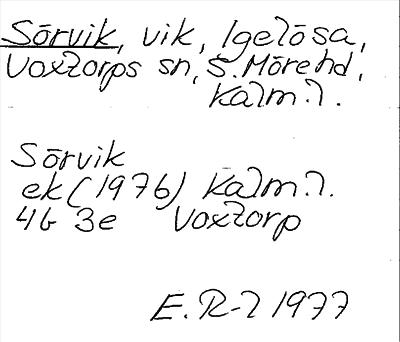 Sörvik, vik, Igelösa,
Voxtorps sn, S. Möre hd,
Kalm. l.
Sörvik
ek (1976) Kalm. l.
4G 3e Voxtorp
E. R-l 1977